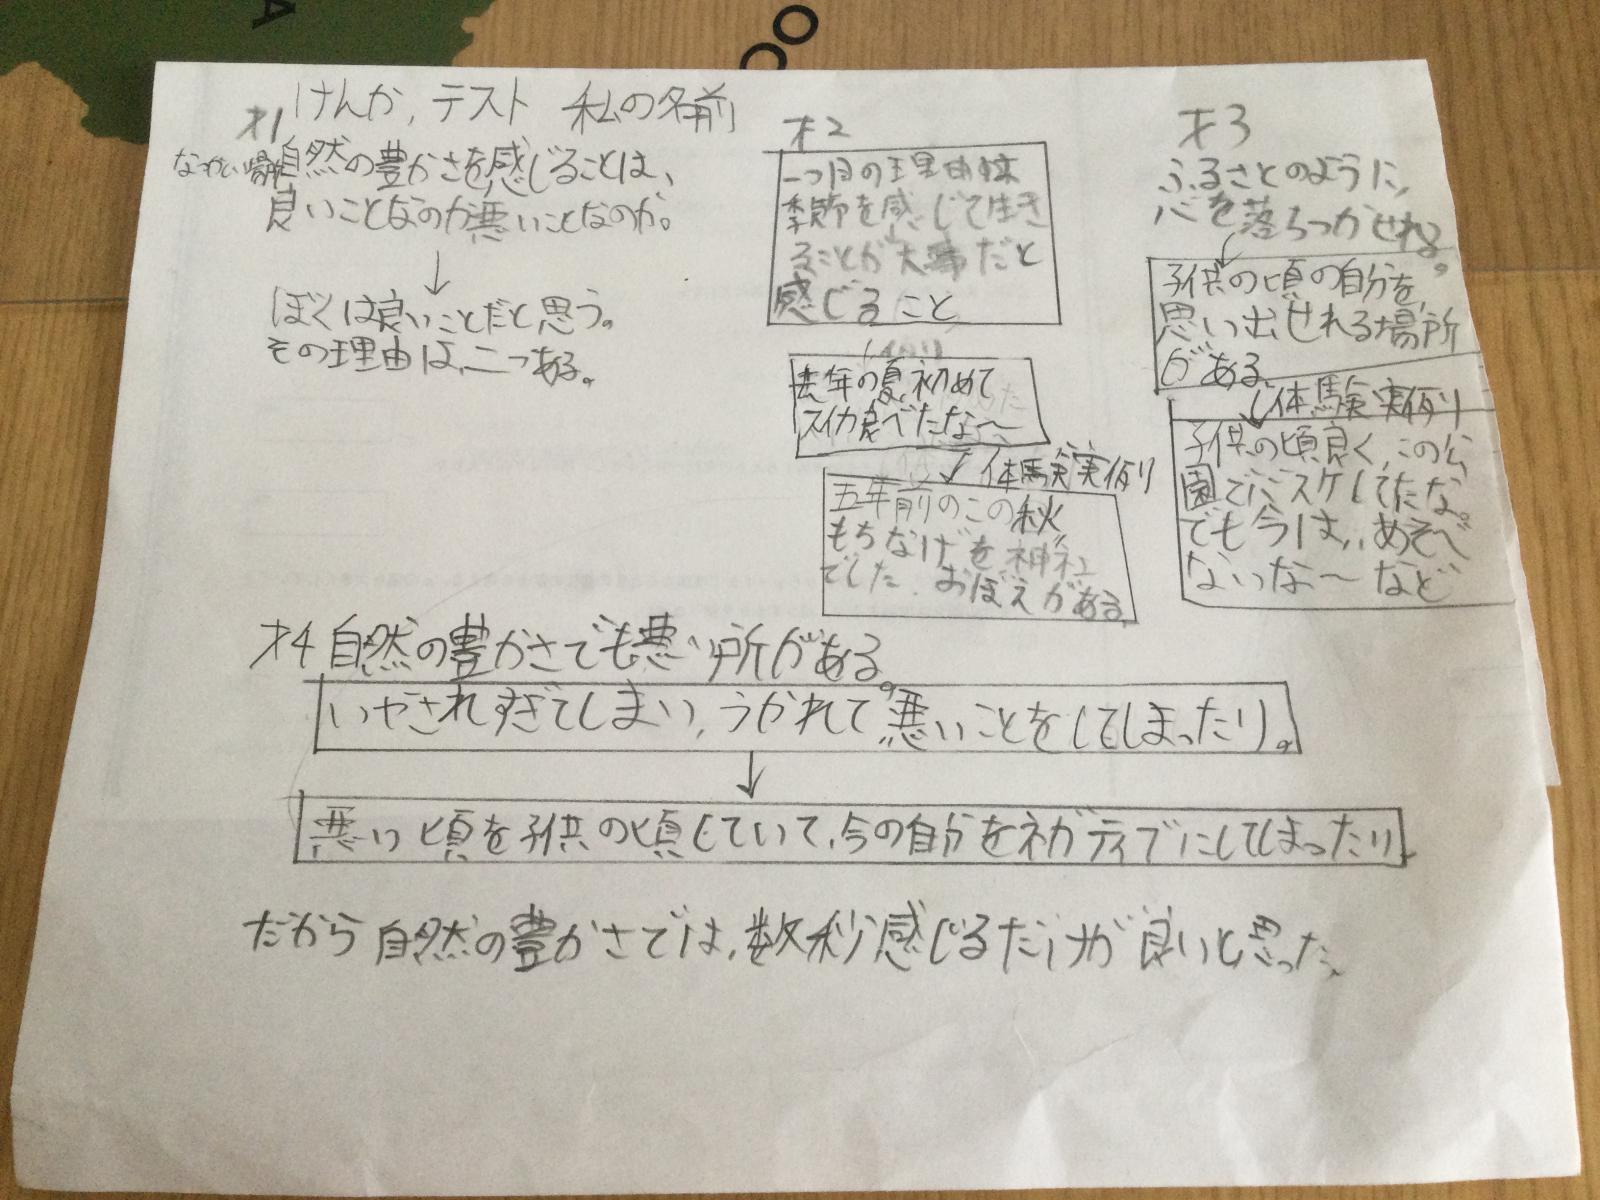 けんか, テスト 私の名前
才1
自然の豊かさを感じることは、
良いことなのか悪いことなのか。
↓
ぼくは良いことだと思う。
その理由は、二つある。
才2
一つ目の理由は
季節を感じて生き
ることが大事だと
感じること
去年の夏、初めて
スイカ食べたな〜
↓体験実例
五年前のこの秋
もちなげを神社
でした、おぼえがある。
才3
ふるさとのように、
心を落ちつかせれる。
↓
子供の頃の自分を、
思い出せれる場所
がある。
↓体験実例
子供の頃良く、この公
園でバスケしてたな。
でも今は、、あそべ
ないな〜など
才4 自然の豊かさでも悪い所がある。
いやされすぎてしまい、うかれて悪いことをしてしまったり。
↓
悪い頃を子供の頃していて、今の自分をネガティブにしてしまったり、
だから自然の豊かさでは、数秒感じるだけが良いと思った、